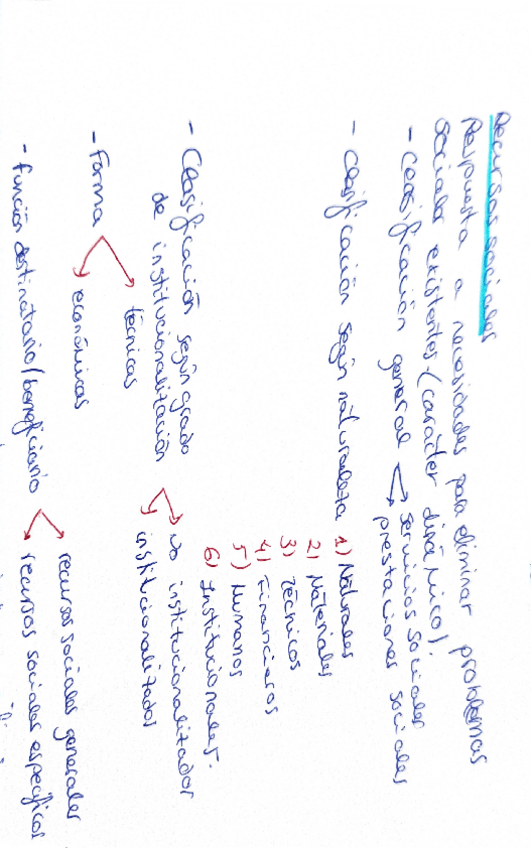 Recursos sociales
Respuesta a necesidades para eliminar problemas
sociales existentes (carácter dinámico).
- Clasificación general → servicios sociales
→ prestaciones sociales
- Clasificación según naturaleza 1) Naturales
2) Materiales
3) Técnicos
4) Financieros
5) Humanos
6) Institucionales.
- Clasificación según grado
de institucionalitación → no institucionalitador
→ institucionalitados
- Forma → técnicas
→ económicas
- función destinatario/beneficiario → recursos sociales generales
→ recursos sociales específicos